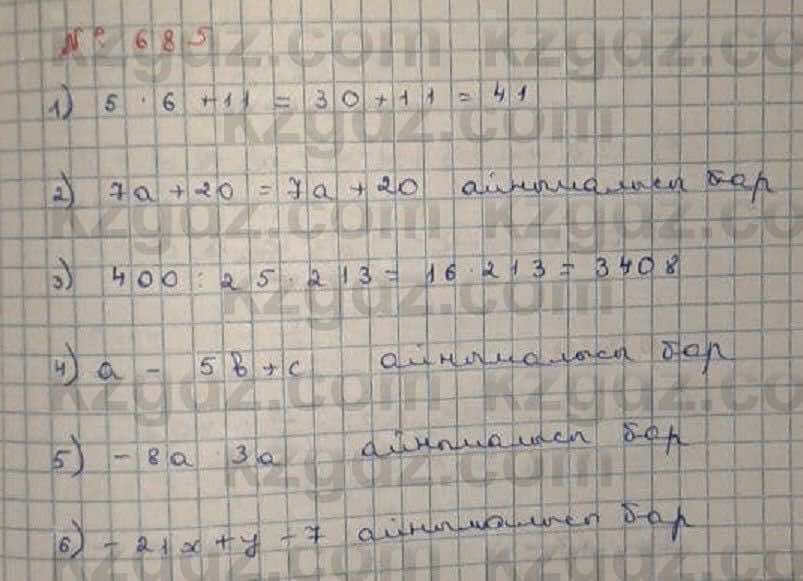 № 685
1) 5 · 6 + 11 = 30 + 11 = 41
2) 7a + 20 = 7a + 20 айнымалысы бар
3) 400 : 25 · 213 = 16 · 213 = 3408
4) a - 5b + c айнымалысы бар
5) - 8a · 3a айнымалысы бар
6) - 21x + y - 7 айнымалысы бар
kzgdz.com